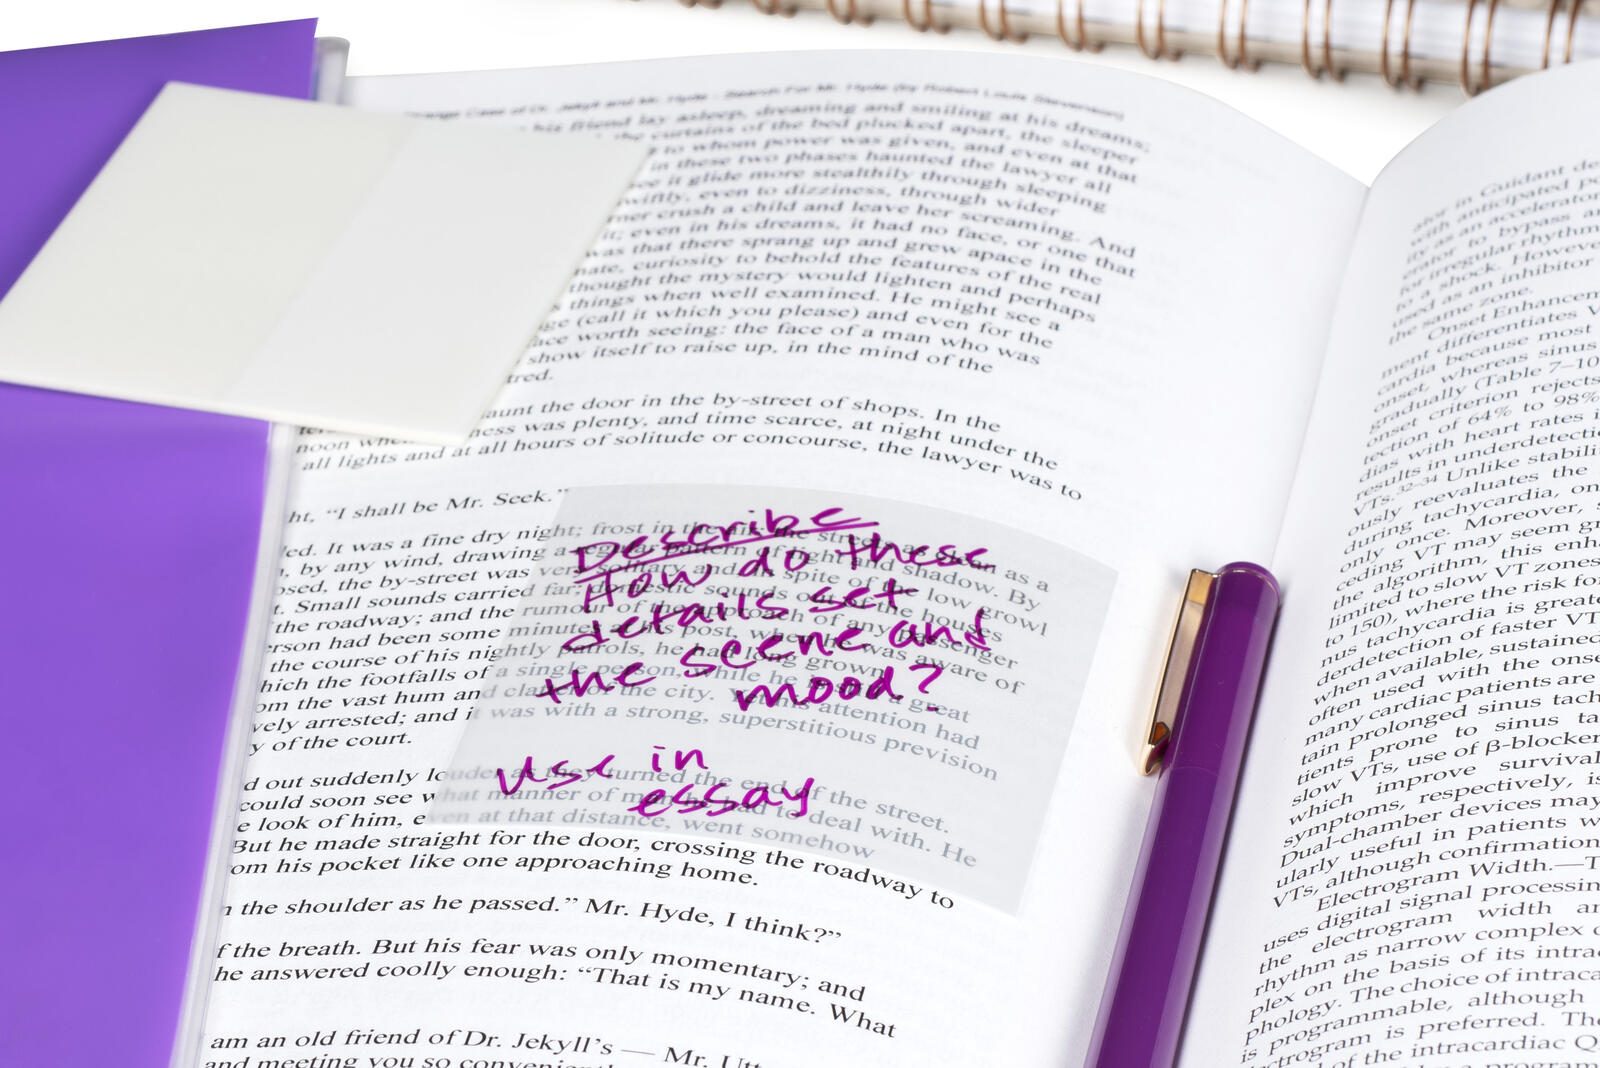 Strange Case of Dr. Jekyll and Mr. Hyde - Search For Mr. Hyde (by Robert Louis Stevenson)
his friend lay asleep, dreaming and smiling at his dreams;
the curtains of the bed plucked apart, the sleeper
to whom power was given, and even at that
in these two phases haunted the lawyer all
ee it glide more stealthily through sleeping
wiftly, even to dizziness, through wider
ner crush a child and leave her screaming. And
it; even in his dreams, it had no face, or one that
was that there sprang up and grew apace in the
nate, curiosity to behold the features of the real
thought the mystery would lighten and perhaps
s things when well examined. He might see a
ge (call it which you please) and even for the
ace worth seeing: the face of a man who was
show itself to raise up, in the mind of the
tred.
aunt the door in the by-street of shops. In the
noon when ness was plenty, and time scarce, at night under the
all lights and at all hours of solitude or concourse, the lawyer was to
ht, “I shall be Mr. Seek.”
Describe
How do these
details set
the scene and
mood?
Use in
essay
led. It was a fine dry night; frost in the air; the streets as clean as a
, by any wind, drawing a regular pattern of light and shadow. By
osed, the by-street was very solitary and in spite of the low growl
t. Small sounds carried far; domestic sounds out of the houses
the roadway; and the rumour of the approach of any passenger
erson had been some minutes at his post, when he was aware of
the course of his nightly patrols, he had long grown
hich the footfalls of a single person, while he is still a great
om the vast hum and clatter of the city. Yet his attention had
vely arrested; and it was with a strong, superstitious prevision
y of the court.
d out suddenly louder as they turned the end of the street.
could soon see what manner of man he had to deal with. He
e look of him, even at that distance, went somehow
But he made straight for the door, crossing the roadway to
om his pocket like one approaching home.
n the shoulder as he passed.” Mr. Hyde, I think?”
f the breath. But his fear was only momentary; and
he answered coolly enough: “That is my name. What
am an old friend of Dr. Jekyll’s — Mr. Utt
and meeting you so convenient
ator in Guidant de
with anticipated po
ity as an accelerator
erator to bypass an
for irregular rhythm
to a shock. However
used as an inhibitor
the same zone.
Onset Enhancem
ment differentiates V
cardia because most
onset, whereas sinus
gradually (Table 7–10
onset criterion rejects
tection of 64% to 98%
dias with heart rates i
results in underdetecti
VTs.32-34 Unlike stabili
ously reevaluates the
during tachycardia, on
only once. Moreover, s
ceding VT may seem gr
the algorithm, this enh
limited to slow VT zones
to 150), where the risk for
nus tachycardia is greate
derdetection of faster VT
when available, sustained
often used with the onse
many cardiac patients are
tain prolonged sinus tach
tients prone to sinus ta
slow VTs, use of β-blocker
which improve survival
symptoms, respectively, is
Dual-chamber devices may
ularly useful in patients w
VTs, although confirmation
Electrogram Width.—T
uses digital signal processin
the electrogram width an
rhythm as narrow complex o
plex on the basis of its intrac
phology. The choice of intraca
is programmable, although
trogram is preferred. The
of the intracardiac Q
a program